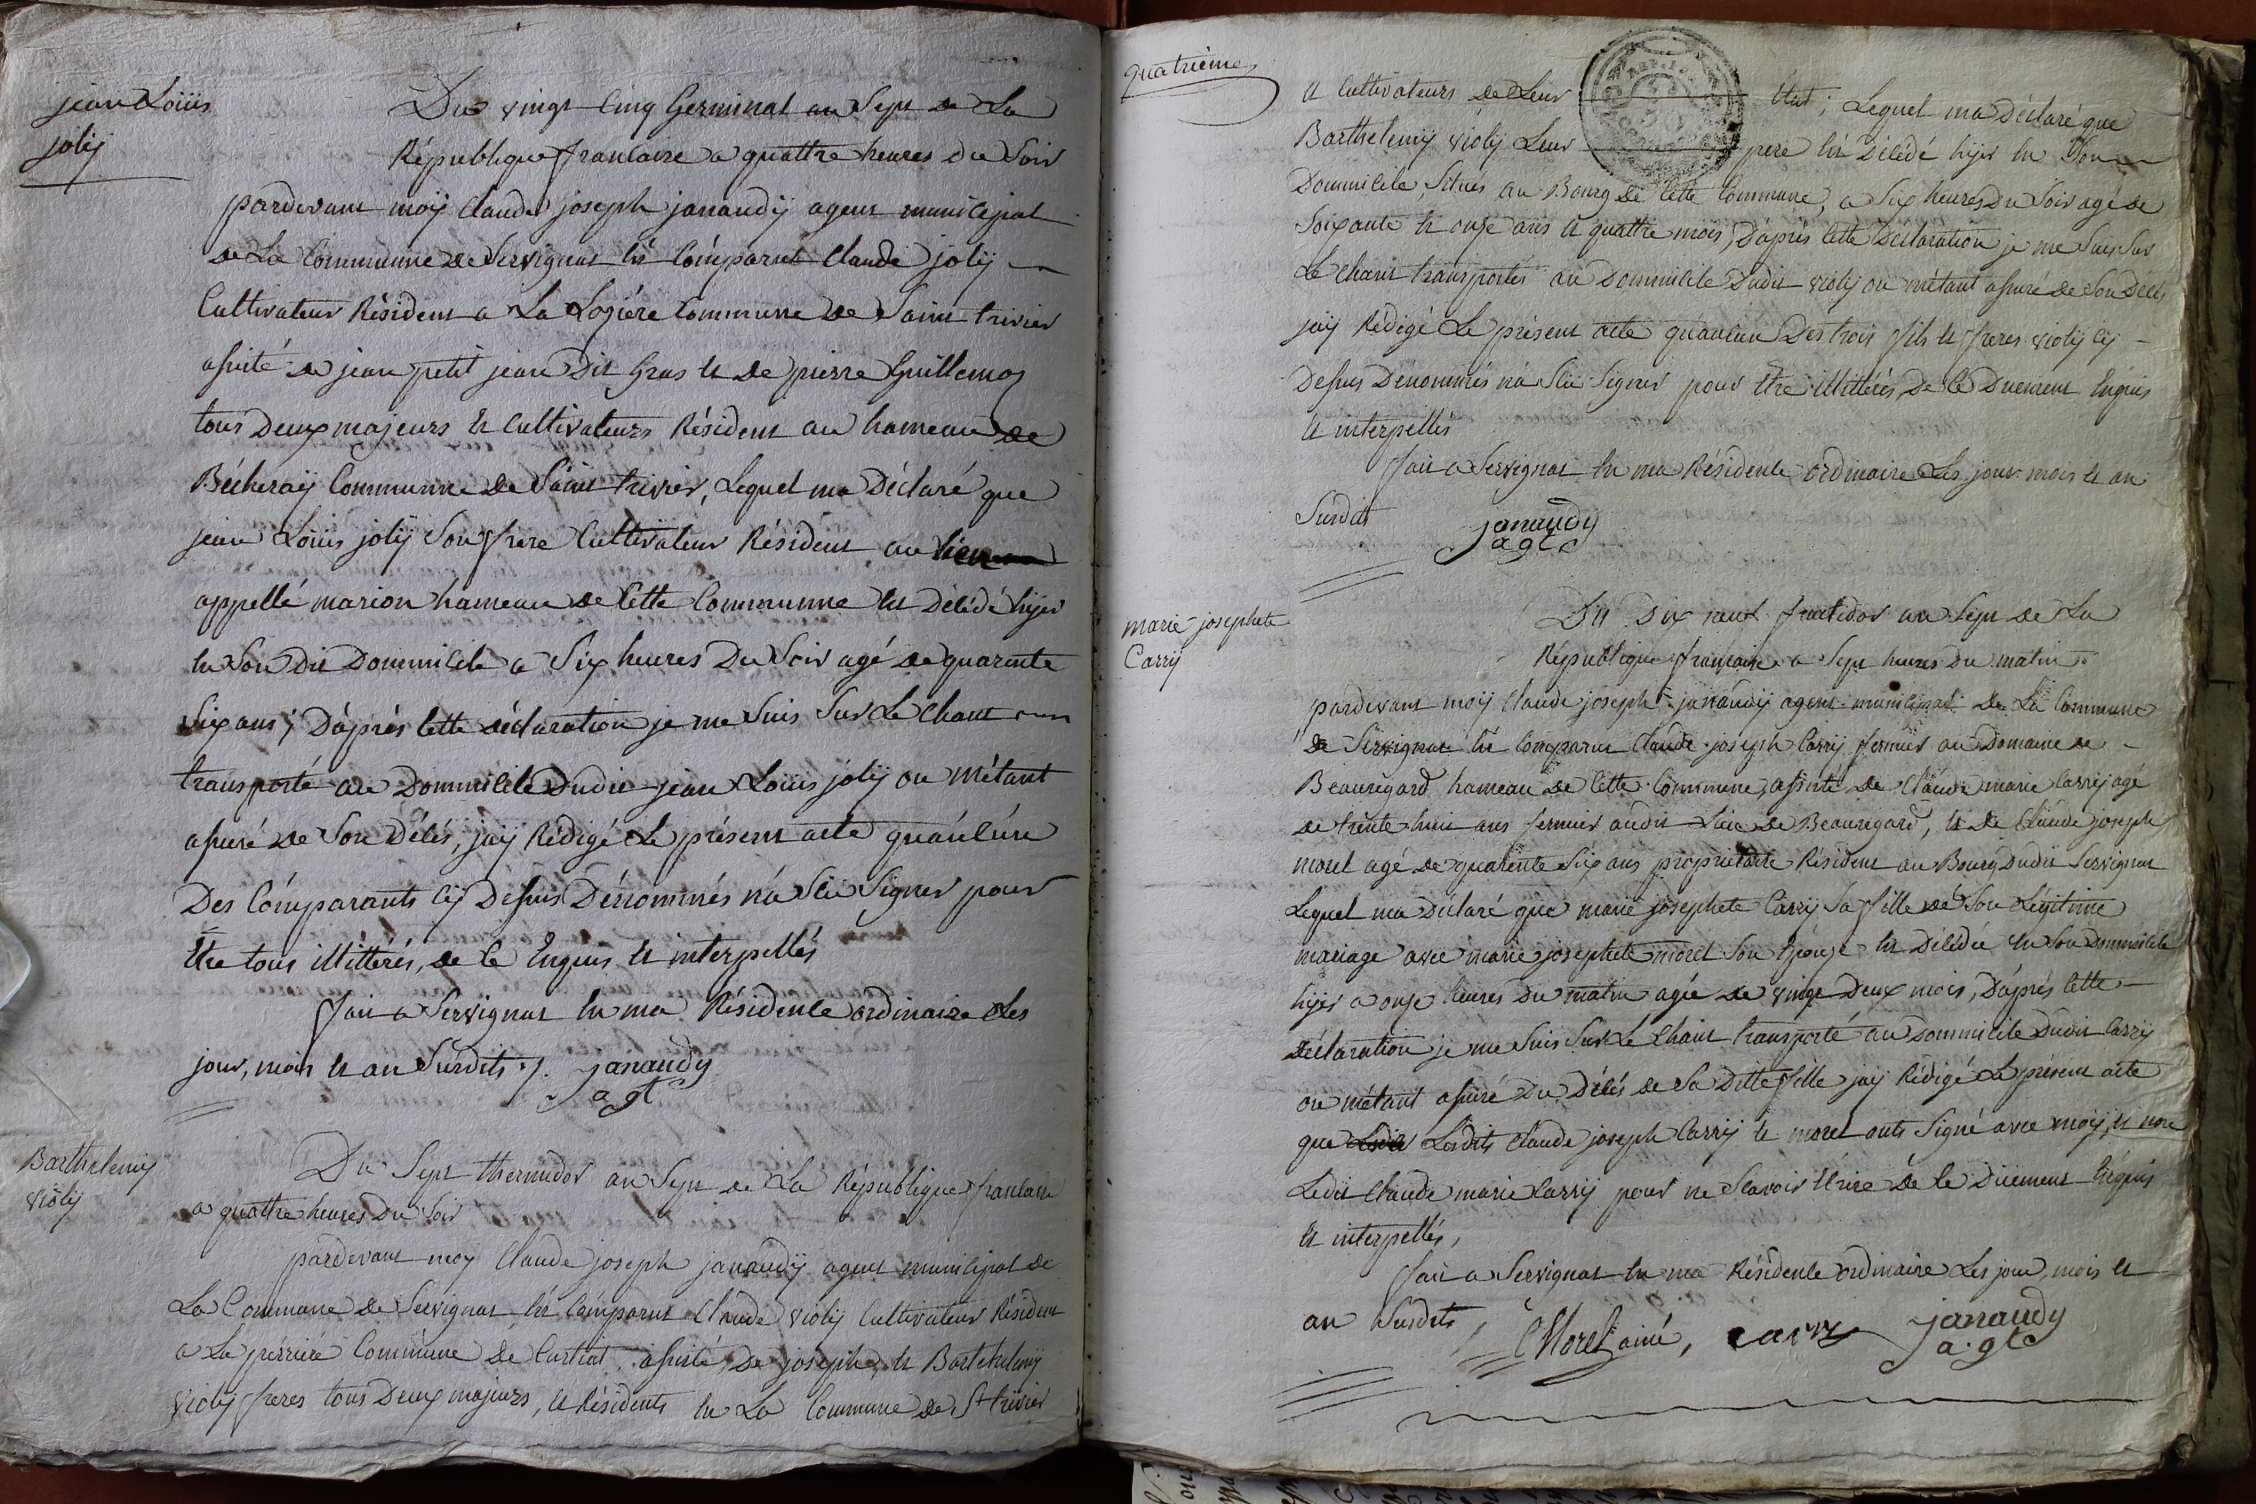 jean Loüis
jolÿ
Du vingt Cinq Germinal an Sept de La
République francaise a quattre heures Du Soir
pardevant moÿ Claude joseph janaudÿ agent municipal
de La Commune de Servignat est Comparut Claude jolÿ
Cultivateur Résident a La Logiére Commune de Saint trivier
assisté de jean petit jean Dit Gras et de pierre Guillemoz
tous Deux majeurs et Cultivateurs Résident au hameau de
Bécheraÿ Commune de Saint trivier, Lequel ma Déclaré que
jean Loüis jolÿ Son frere Cultivateur Résident au lieu
appellé marion hameau de Cette Commune est Décédé hÿer
en Son dit Dommicile a Six heures Du Soir agé de quarente
Six ans; D'aprés Cette déclaration je me Suis Sur Le Chant
transporté au Dommicile Dudit jean Loüis jolÿ ou M'étant
assuré de Son Décés, jaÿ Rédigé Le présent acte qu'aucun
Des Comparants Cÿ Dessus Dénommés n'a Sçu Signer pour
Etre tous illittérés, de ce Enquis et interpellés
fait a Servignat en ma Résidence ordinaire Les
jour, mois et an Susdits ./. janaudy
agt
Barthelemÿ
violÿ
Du Sept thermidor an Sept de La République francaise
a quattre heures Du Soir
pardevant moÿ Claude joseph janaudÿ agent municipal de
La Commune de Servignat est Comparut Claude violÿ Cultivateur Résident
a La perriere Commune de Curtiat assisté de joseph et Barthelemÿ
violÿ freres tous Deux majeurs, et Résidents en La Commune de St trivier
quatrieme
et Cultivateurs de Leur Etat; Lequel ma Déclaré que
Barthelemÿ violÿ Leur pere est Décédé hÿer en Son
Dommicile, Situés au Bourg de Cette Commune, a Six heures Du Soir agé de
Soixante et onze ans et quattre mois, D'aprés Cette Déclaration je me Suis Sur
Le Chant transportés au Dommicile Dudit violÿ ou m'étant assuré de Son Décés
jaÿ Rédigé Le présent acte qu'aucun Des trois fils et freres violÿ Cÿ
Dessus Dénommés n'a Sçu Signer pour Etre illittérés, De Ce Duement Enquis
et interpellés
fait a Servignat en ma Résidence ordinaire Les jour mois et an
Susdits janaudy
agt
marie josephete
Carrÿ
Du Dix neuf fructidor an Sept de La
République francaise a Sept heures Du matin
pardevant moÿ Claude joseph janaudÿ agent municipal De La Commune
de Servignat est Comparut Claude joseph Carrÿ fermier au Domaine de
Beauregard hameau de Cette Commune, assisté de Claude marie Carrÿ agé
de trente huit ans fermier audit Lieu de Beauregard, et de Claude joseph
morel agé de quarente Six ans proprietaire Résident au Bourg Dudit Servignat
Lequel ma Déclaré que marie josephete Carrÿ Sa fille de Son Légitime
mariage avec marie josephete morel Son Epouze est Décédée en Son Dommicile
hÿer a onze heures Du matin agée de vingt Deux mois, D'aprés Cette
déclaration je me Suis Sur Le Chant transporté au Dommicile Dudit Carrÿ
ou m'étant assuré Du Décés de Sa Ditte fille jaÿ Rédigé Le présent acte
que Lesdits Claude joseph Carrÿ et morel onts Signé avec moÿ, et non
Ledit Claude marie Carrÿ pour ne Scavoir Ecrire de Ce Duement Enquis
et interpellés,
fait a Servignat en ma Résidence ordinaire Les jour, mois et
an Susdits, C Morel ainé, carry janaudy
a.gt